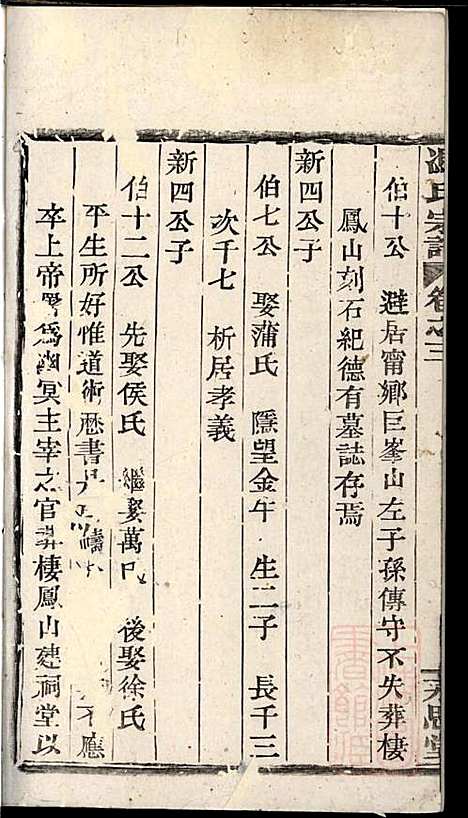 氏宗譜 卷之三
伯十公 避居甯鄉巨峯山左子孫傳守不失葬棲
鳳山刻石紀德有墓誌存焉
新四公子
伯七公 娶蒲氏 隱望金牛 生二子 長千三
次千七 析居孝義
新四公子
伯十二公 先娶侯氏 繼娶萬氏 後娶徐氏
平生所好惟道術歷書 不應
卒上帝畧爲幽冥主宰之官葬棲鳳山建祠堂以
思堂